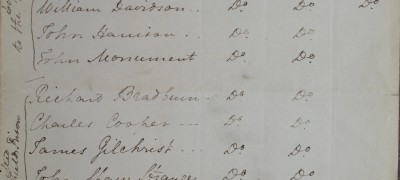 William Davidson... Do Do Do
John Harrison Do Do
John Monument Do Do
Richard Bradburn... Do Do
Charles Cooper... Do Do
James Gilchrist... Do Do
John Shaw Strange Do Do
to the
Prison